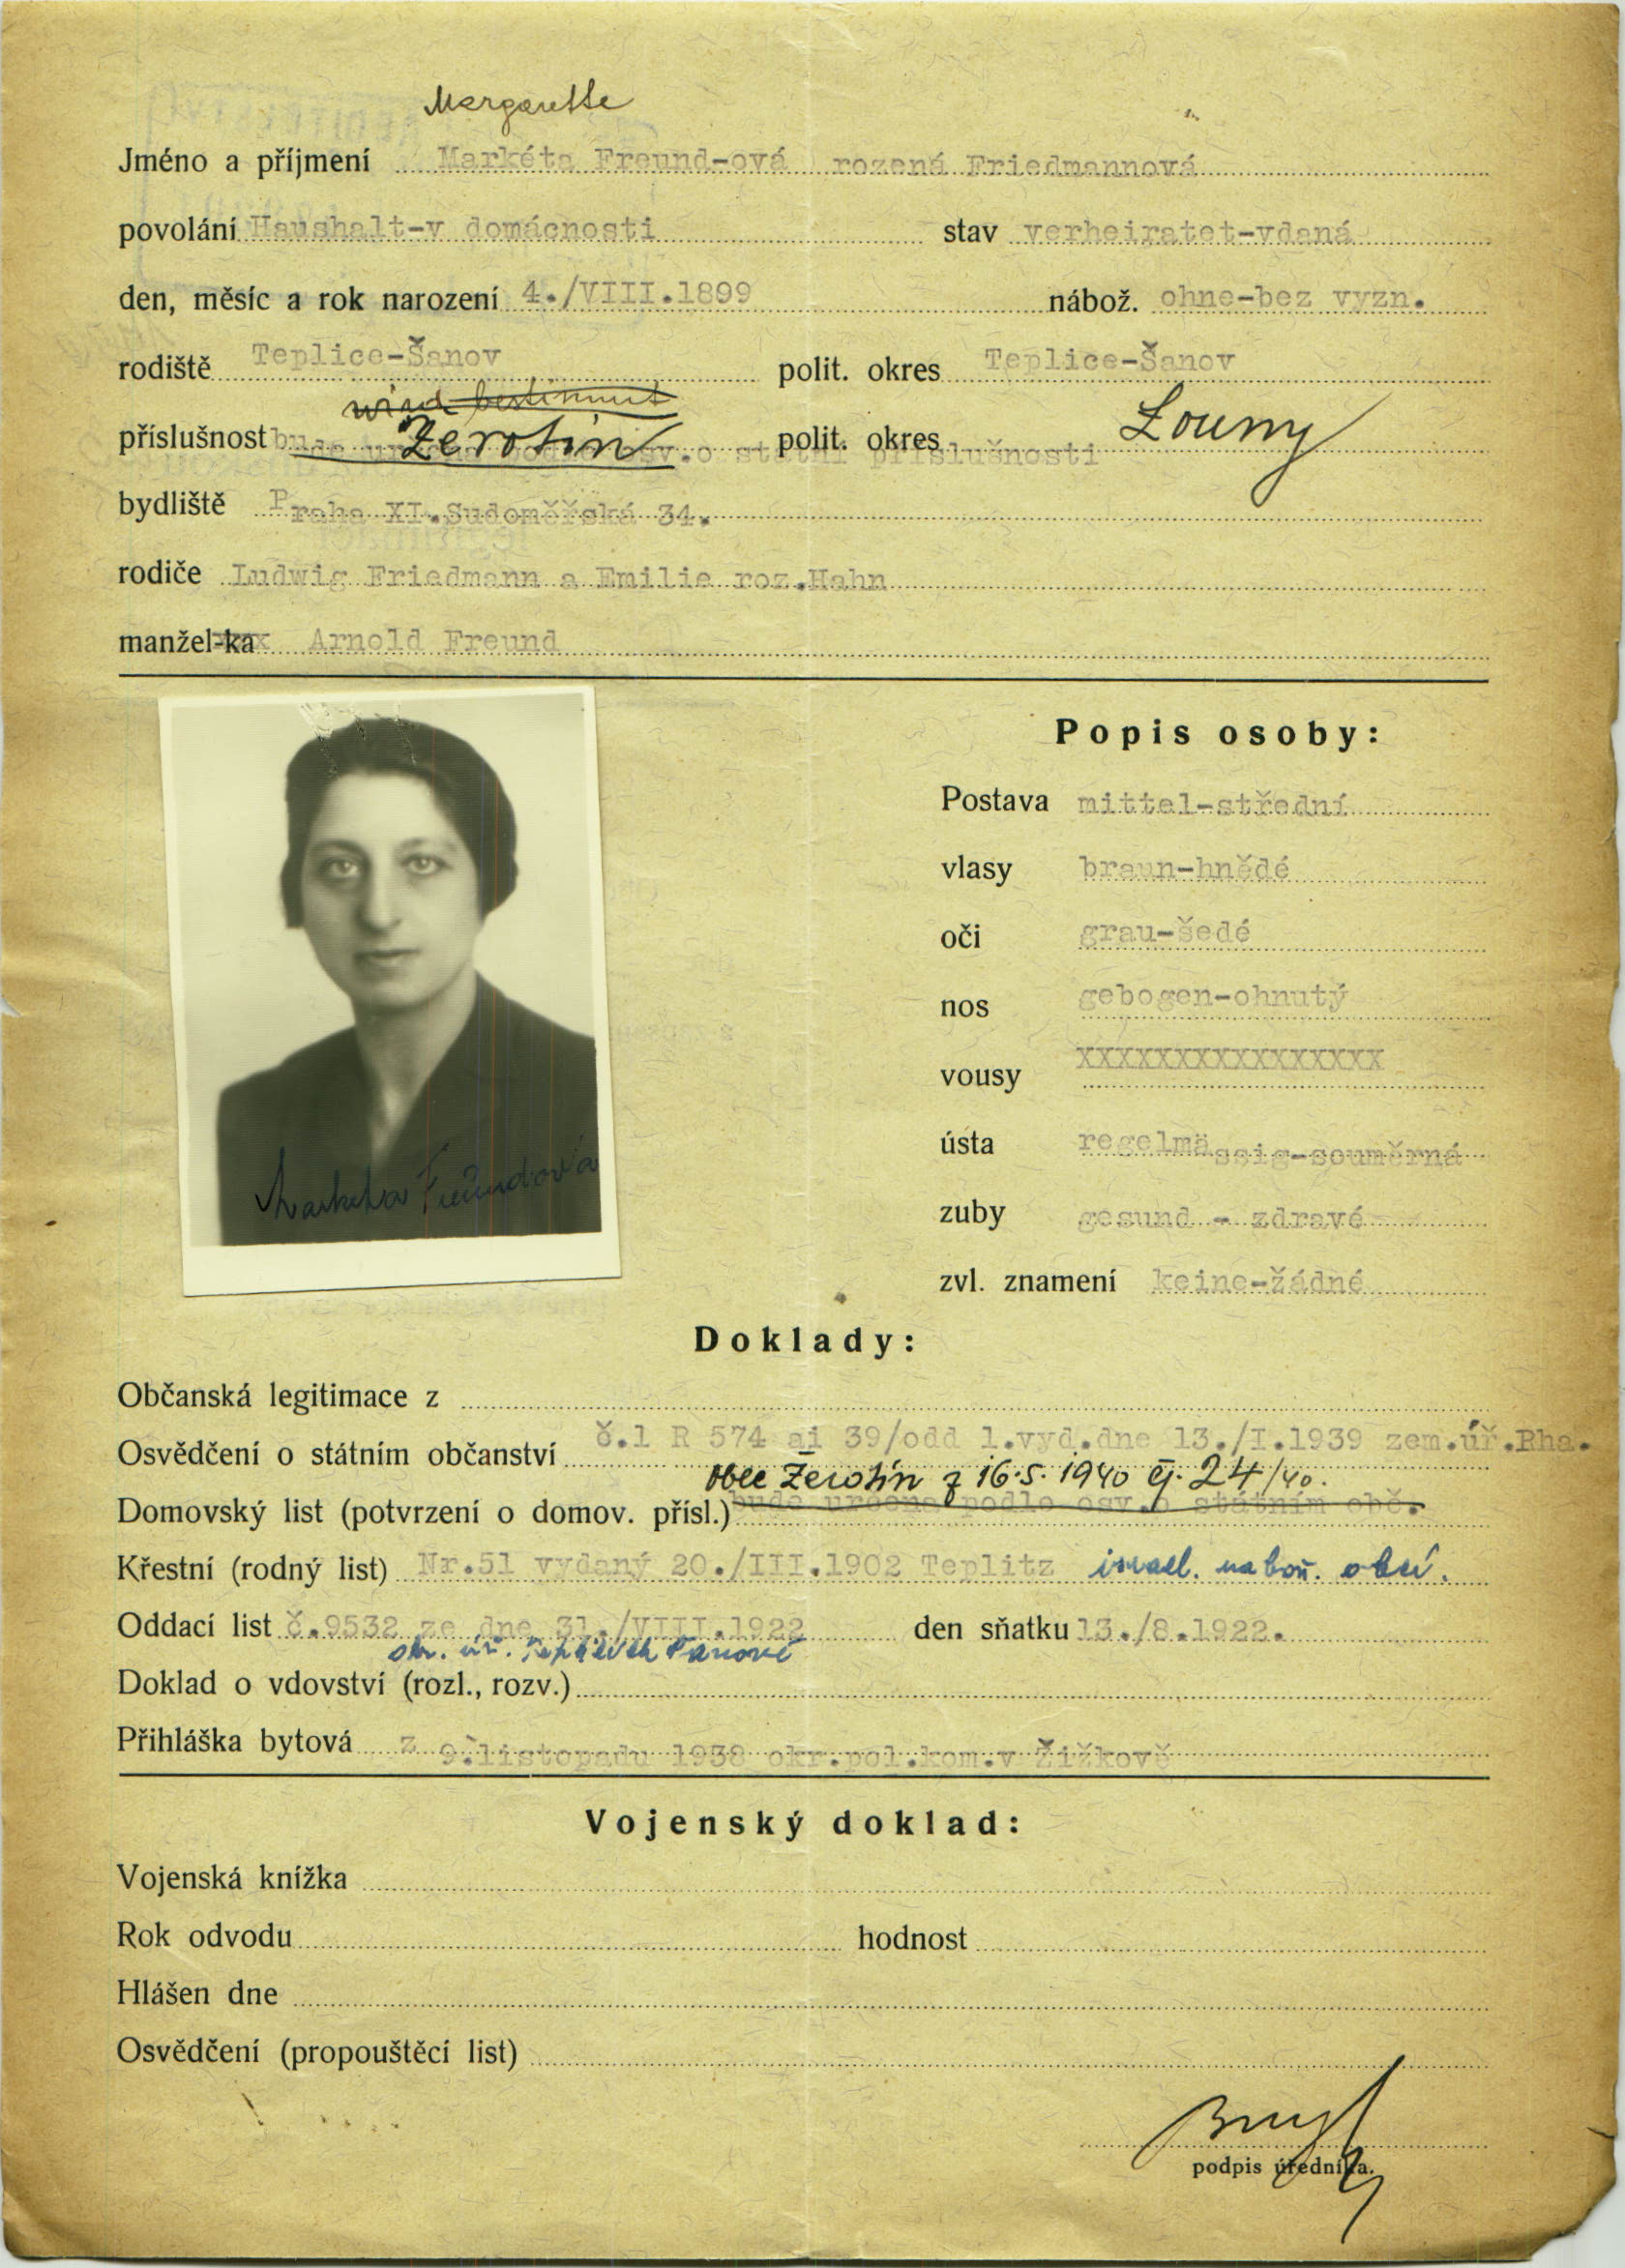 Margarethe
Jméno a příjmení Markéta Freund-ová rozená Friedmannová
povolání Haushalt-v domácnosti stav verheiratet-vdaná
den, měsíc a rok narození 4./VIII.1899 nábož. ohne-bez vyzn.
rodiště Teplice-Šanov polit. okres Teplice-Šanov
wird bestimmt
příslušnost bude Žerotín o státní příslušnosti polit. okres Louny
bydliště Praha XI.Sudoměřská 34.
rodiče Ludwig Friedmann a Emilie roz.Hahn
manžel-ka Arnold Freund
Popis osoby:
Postava mittel-střední
vlasy braun-hnědé
oči grau-šedé
nos gebogen-ohnutý
vousy XXXXXXXXXXXXXXXX
ústa regelmässig-souměrná
zuby gesund - zdravé
zvl. znamení keine-žádné
Markéta Freundová
Doklady:
Občanská legitimace z
Osvědčení o státním občanství č.1 R 574 ai 39/odd 1.vyd.dne 13./I.1939 zem.úř.Pha.
obce Žerotín z 16.5.1940 čj. 24/40.
Domovský list (potvrzení o domov. přísl.) bude určena podle osv.o státním obč.
Křestní (rodný list) Nr.51 vydaný 20./III.1902 Teplitz israel. nábož. obcí.
Oddací list č.9532 ze dne 31./VIII.1922 den sňatku 13./8.1922.
okr. úř. Šanově
Doklad o vdovství (rozl., rozv.)
Přihláška bytová z 9.listopadu 1938 okr.pol.kom.v Žižkově
Vojenský doklad:
Vojenská knížka
Rok odvodu hodnost
Hlášen dne
Osvědčení (propouštěcí list)
podpis úředníka.